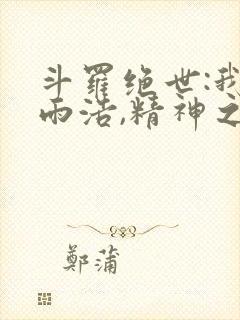 斗羅绝世:我
雨浩,精神之
鄭蒲